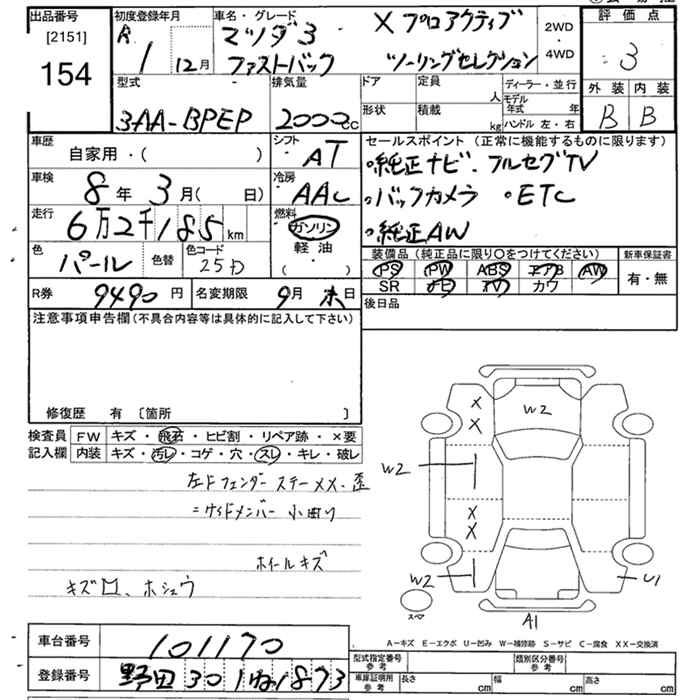 出品番号 初度登録年月 車名・グレード 評価点
[2151] R マツダ3 X プロアクティブ 2WD
154 1 12月 ファストバック ツーリングセレクション ・4WD 3
型式 排気量 ドア 定員 人 ディーラー・並行 外装 内装
形状 積載 kg モデル年式 年 B B
3AA-BPEP 2000cc ハンドル 左・右
車歴 自家用・( ) シフト AT セールスポイント (正常に機能するものに限ります)
・純正ナビ、フルセグTV
車検 8年3月( 日) 冷房 AAC ・バックカメラ ・ETC
走行 6万2千185km 燃料 ガソリン ・純正AW
軽油
( )
色 パール 色替 色コード 25D 装備品 (純正品に限り○をつけてください) 新車保証書
PS PW ABS エアB AW 有・無
SR ナビ TV カワ
R券 9490円 名変期限 9月末日 後日品
注意事項申告欄(不具合内容等は具体的に記入して下さい)
修復歴 有 〔箇所 〕
検査員 FW キズ・飛石・ヒビ割・リペア跡・×要
記入欄 内装 キズ・汚レ・コゲ・穴・スレ・キレ・破レ
左Fフェンダー ステーXX、歪
=サイドメンバー 小凹り
ホイールキズ
キズ ロ、ホシュウ
X W2
X
W2
X
X
W2 U1
スペア
A1
A-キズ E-エクボ U-凹み W-補修跡 S-サビ C-腐食 XX-交換済
車台番号 101170 型式指定番号 参考 類別区分番号 参考
登録番号 野田 301 ね 1873 車庫証明用 参考 長さ cm 幅 cm 高さ cm